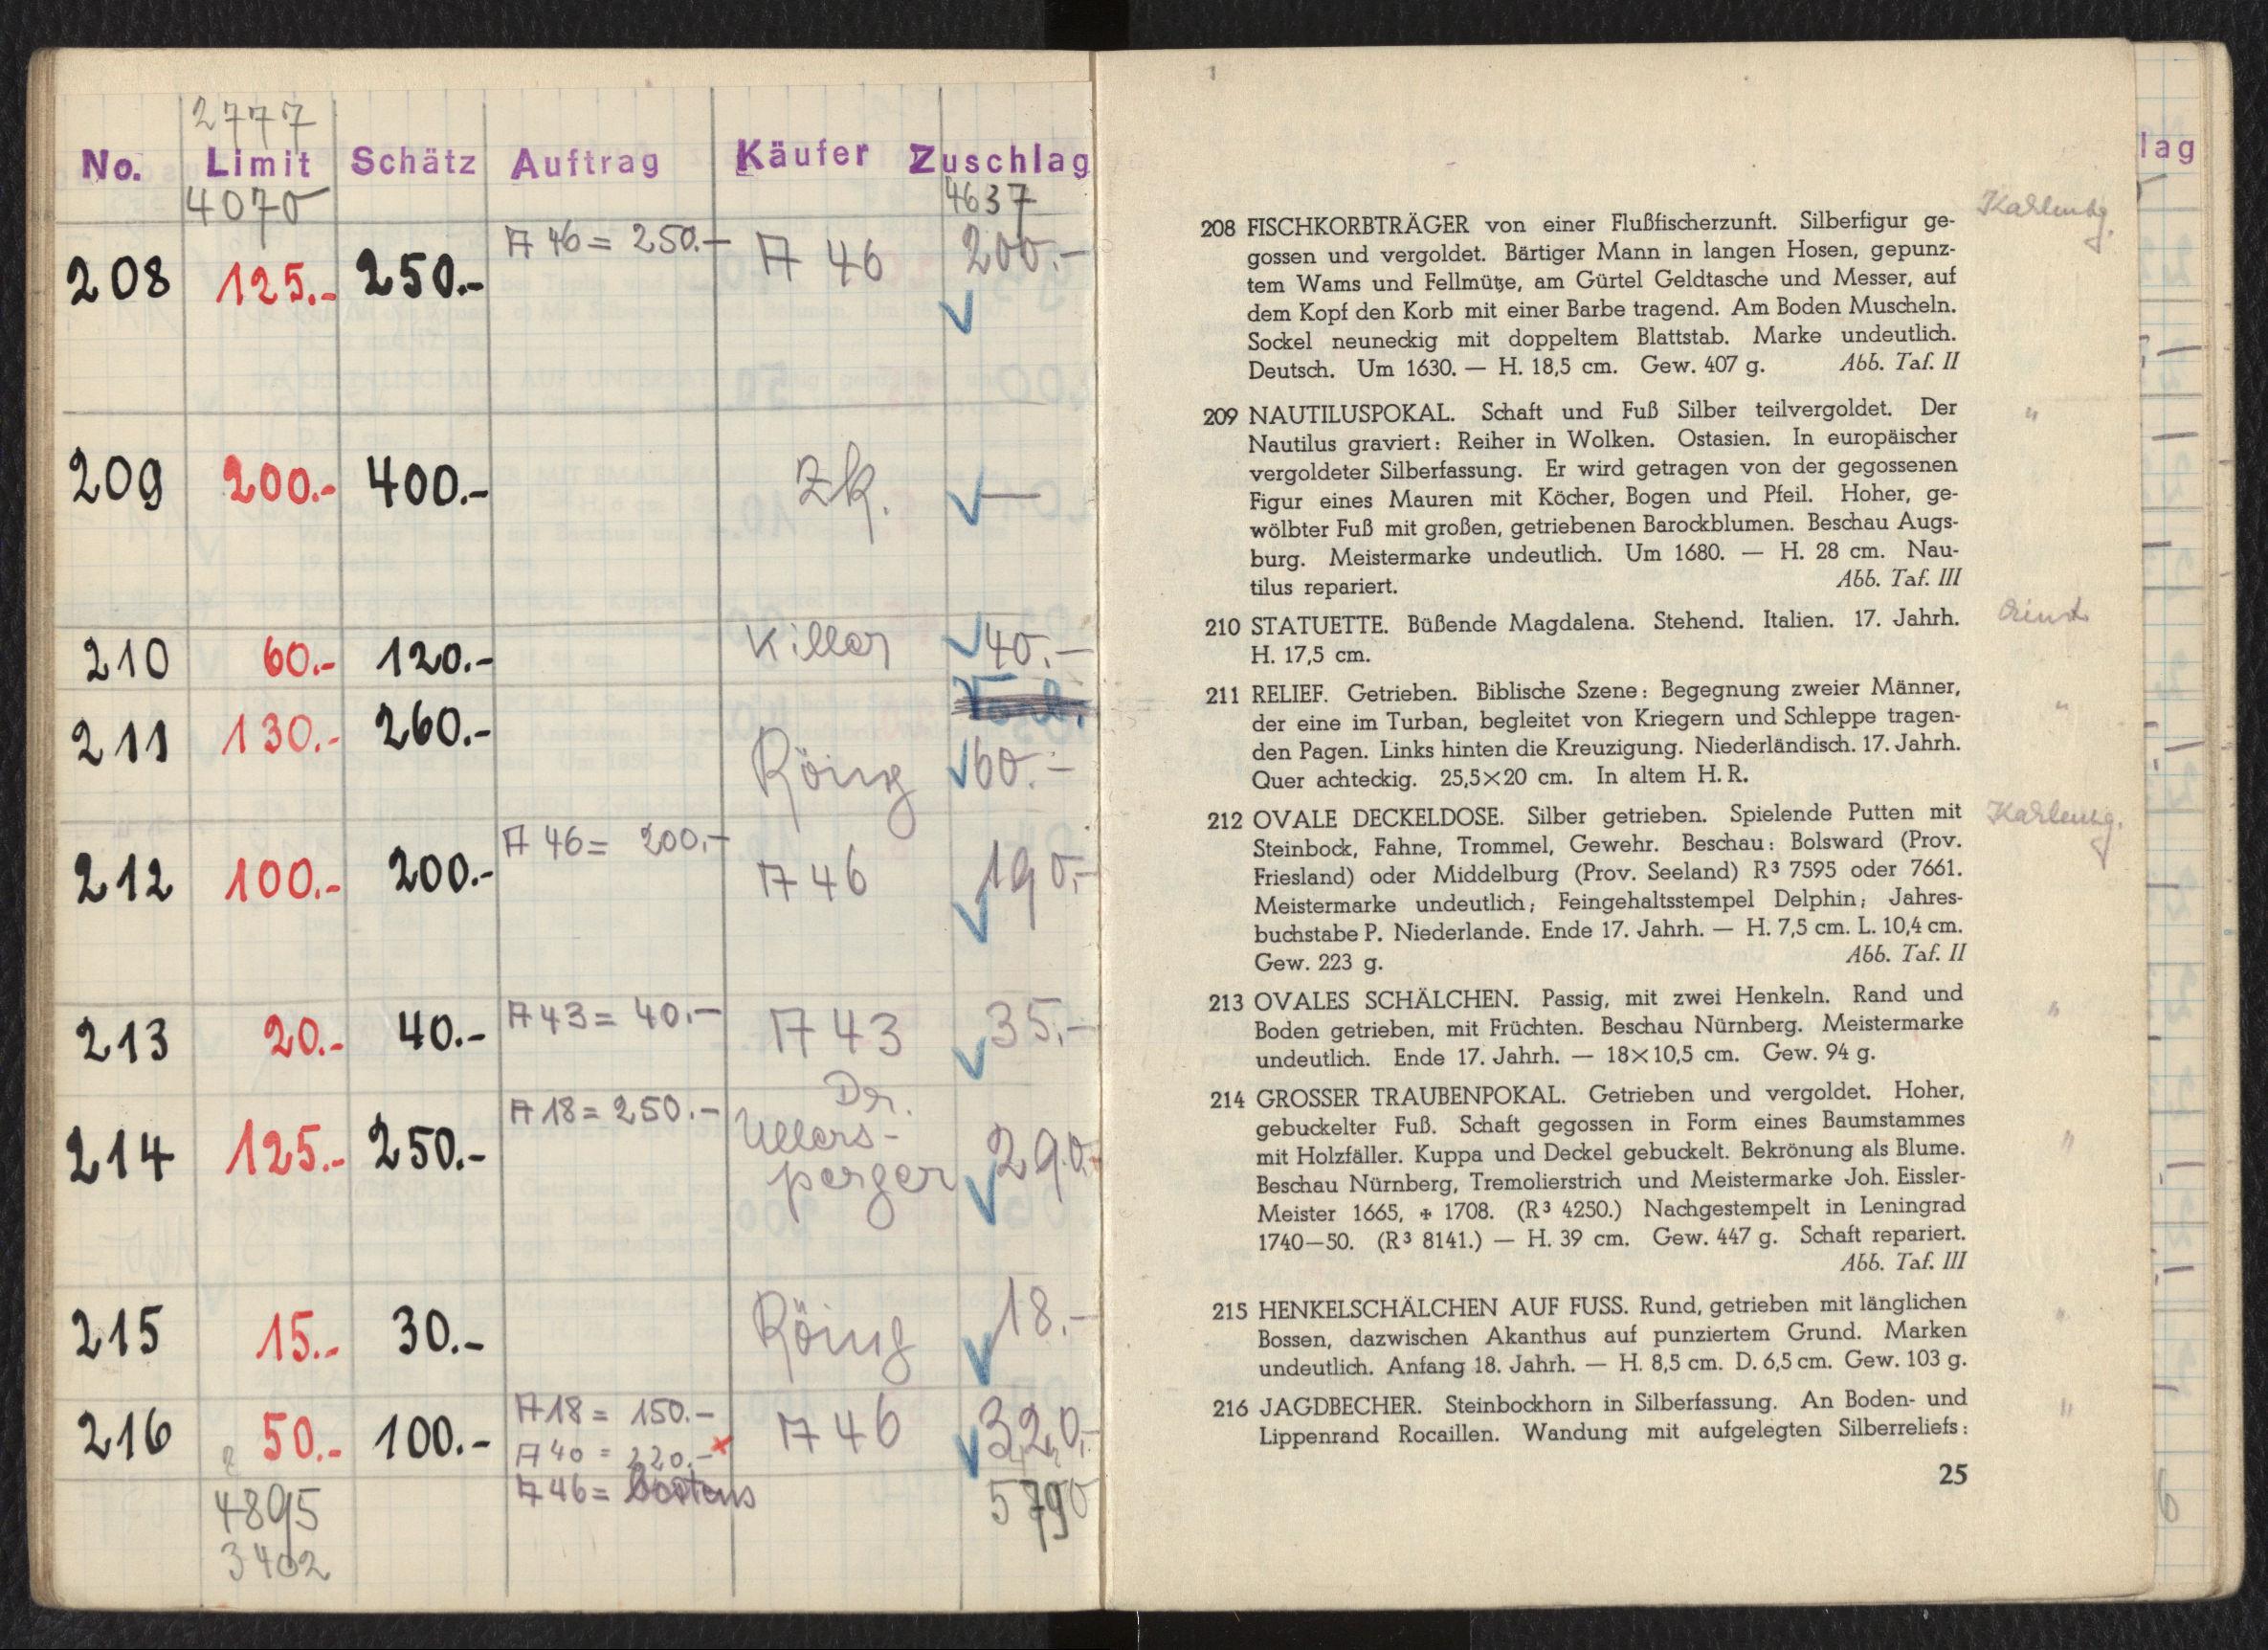 2777
No. Limit Schätz Auftrag Käufer Zuschlag
4070 4637
208 125.- 250.- A 46 = 250.- A 46 200.-
209 200.- 400.- Zk. —
210 60.- 120.- Killer 40.-
211 130.- 260.- Röing 60.-
212 100.- 200.- A 46 = 200.- A 46 190.-
213 20.- 40.- A 43 = 40.- A 43 35.-
214 125.- 250.- A 18 = 250.- Dr.
Ullers-
perger 290.-
215 15.- 30.- Röing 18.-
216 50.- 100.- A 18 = 150.- A 46 320.-
A 40 = 220.-
A 46 = bestens
4895 5790
3402
208 FISCHKORBTRÄGER von einer Flußfischerzunft. Silberfigur ge-
gossen und vergoldet. Bärtiger Mann in langen Hosen, gepunz-
tem Wams und Fellmütze, am Gürtel Geldtasche und Messer, auf
dem Kopf den Korb mit einer Barbe tragend. Am Boden Muscheln.
Sockel neuneckig mit doppeltem Blattstab. Marke undeutlich.
Deutsch. Um 1630. — H. 18,5 cm. Gew. 407 g. Abb. Taf. II
209 NAUTILUSPOKAL. Schaft und Fuß Silber teilvergoldet. Der "
Nautilus graviert: Reiher in Wolken. Ostasien. In europäischer
vergoldeter Silberfassung. Er wird getragen von der gegossenen
Figur eines Mauren mit Köcher, Bogen und Pfeil. Hoher, ge-
wölbter Fuß mit großen, getriebenen Barockblumen. Beschau Augs-
burg. Meistermarke undeutlich. Um 1680. — H. 28 cm. Nau-
tilus repariert. Abb. Taf. III
210 STATUETTE. Büßende Magdalena. Stehend. Italien. 17. Jahrh.
H. 17,5 cm.
211 RELIEF. Getrieben. Biblische Szene: Begegnung zweier Männer, "
der eine im Turban, begleitet von Kriegern und Schleppe tragen-
den Pagen. Links hinten die Kreuzigung. Niederländisch. 17. Jahrh.
Quer achteckig. 25,5×20 cm. In altem H. R.
212 OVALE DECKELDOSE. Silber getrieben. Spielende Putten mit
Steinbock, Fahne, Trommel, Gewehr. Beschau: Bolsward (Prov.
Friesland) oder Middelburg (Prov. Seeland) R³ 7595 oder 7661.
Meistermarke undeutlich; Feingehaltsstempel Delphin; Jahres-
buchstabe P. Niederlande. Ende 17. Jahrh. — H. 7,5 cm. L. 10,4 cm.
Gew. 223 g. Abb. Taf. II
213 OVALES SCHÄLCHEN. Passig, mit zwei Henkeln. Rand und "
Boden getrieben, mit Früchten. Beschau Nürnberg. Meistermarke
undeutlich. Ende 17. Jahrh. — 18×10,5 cm. Gew. 94 g.
214 GROSSER TRAUBENPOKAL. Getrieben und vergoldet. Hoher,
gebuckelter Fuß. Schaft gegossen in Form eines Baumstammes "
mit Holzfäller. Kuppa und Deckel gebuckelt. Bekrönung als Blume.
Beschau Nürnberg, Tremolierstrich und Meistermarke Joh. Eissler-
Meister 1665, ✠ 1708. (R³ 4250.) Nachgestempelt in Leningrad
1740—50. (R³ 8141.) — H. 39 cm. Gew. 447 g. Schaft repariert.
Abb. Taf. III
215 HENKELSCHÄLCHEN AUF FUSS. Rund, getrieben mit länglichen "
Bossen, dazwischen Akanthus auf punziertem Grund. Marken
undeutlich. Anfang 18. Jahrh. — H. 8,5 cm. D. 6,5 cm. Gew. 103 g.
216 JAGDBECHER. Steinbockhorn in Silberfassung. An Boden- und "
Lippenrand Rocaillen. Wandung mit aufgelegten Silberreliefs:
25
lag
6